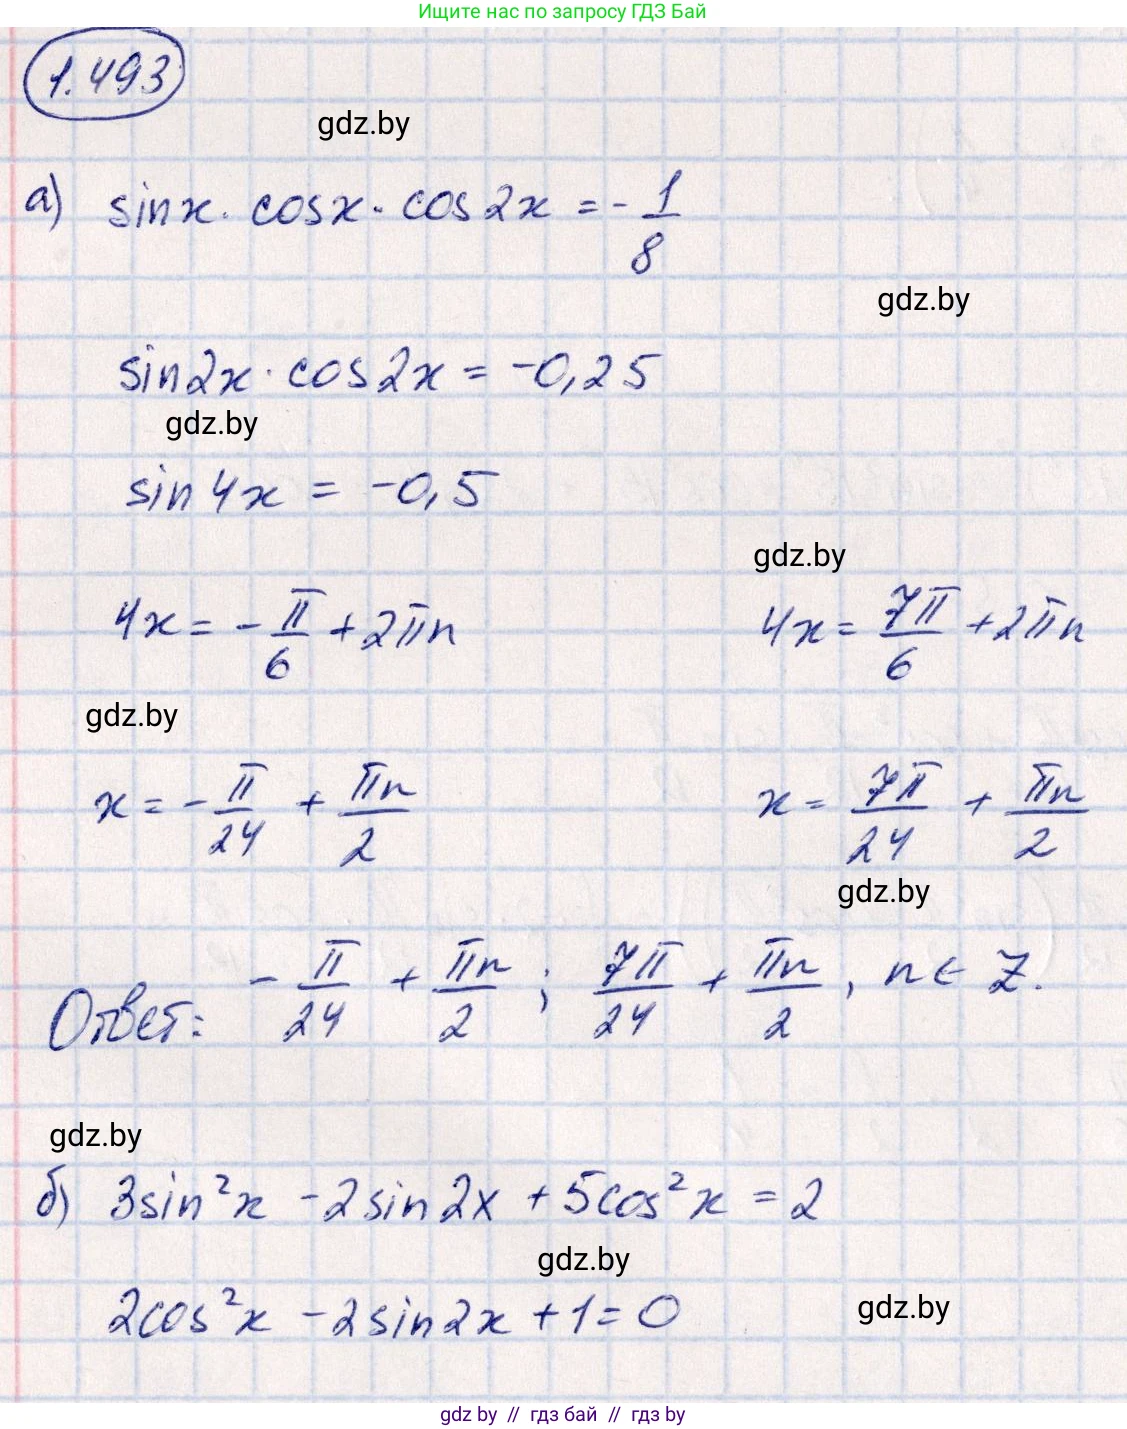 Ищите нас по запросу ГДЗ Бай
1.493
gdz.by
а) sinx · cosx · cos2x = - 1/8
gdz.by
sin2x · cos2x = -0,25
gdz.by
sin4x = -0,5
gdz.by
4x = - π/6 + 2πn 4x = 7π/6 + 2πn
gdz.by
x = - π/24 + πn/2 x = 7π/24 + πn/2
gdz.by
Ответ: - π/24 + πn/2 ; 7π/24 + πn/2 , n ∈ Z.
gdz.by
б) 3sin²x - 2sin2x + 5cos²x = 2
gdz.by
2cos²x - 2sin2x + 1 = 0
gdz.by
gdz by // гдз бай // gdz by